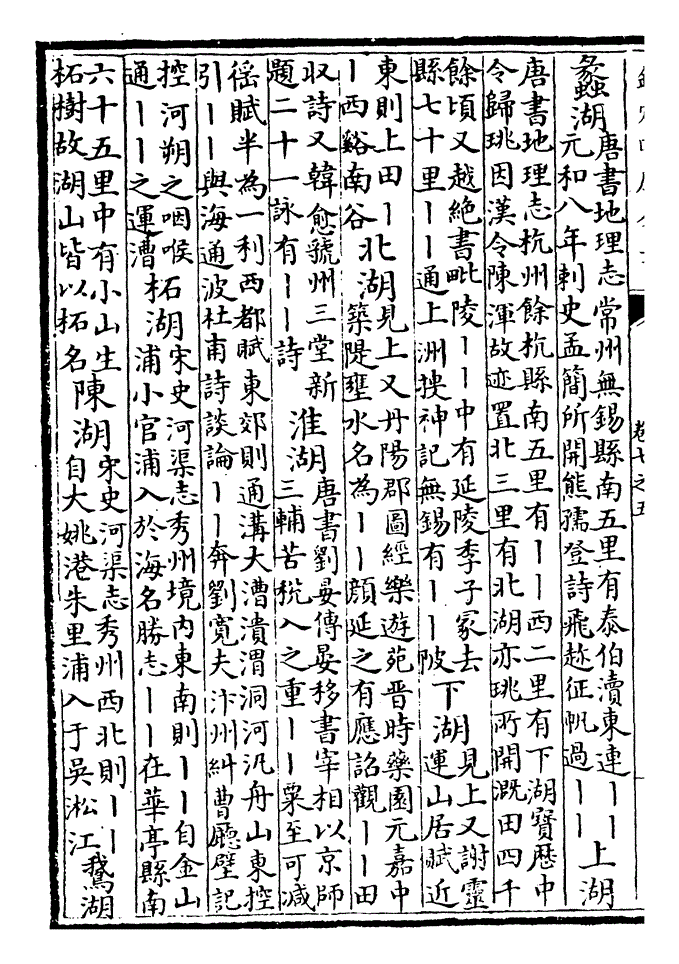 卷七之五
蠡湖
唐書地理志常州無錫縣南五里有泰伯瀆東連丨丨
元和八年刺史孟簡所開熊孺登詩飛趂征帆過丨丨
上湖
唐書地理志杭州餘杭縣南五里有丨丨西二里有下湖寶歴中
令歸珧因漢令陳渾故迹置北三里有北湖亦珧所開溉田四千
餘頃又越絶書毗陵丨丨中有延陵季子冢去
縣七十里丨丨通上洲捜神記無錫有丨丨陂
下湖
見上又謝靈
運山居賦近
東則上田丨
丨西谿南谷
北湖
見上又丹陽郡圖經樂遊苑晉時藥園元嘉中
築隄壅水名為丨丨顔延之有應詔觀丨丨田
収詩又韓愈虢州三堂新
題二十一詠有丨丨詩
淮湖
唐書劉晏傳晏移書宰相以京師
三輔苦稅入之重丨丨粟至可減
徭賦半為一利西都賦東郊則通溝大漕潰渭洞河汎舟山東控
引丨丨與海通波杜甫詩談論丨丨奔劉寛夫汴州糾曹廳壁記
控河朔之咽喉
通丨丨之運漕
柘湖
宋史河渠志秀州境内東南則丨丨自金山
浦小官浦入於海名勝志丨丨在華亭縣南
六十五里中有小山生
柘樹故湖山皆以柘名
陳湖
宋史河渠志秀州西北則丨丨
自大姚港朱里浦入于吳淞江
鵝湖